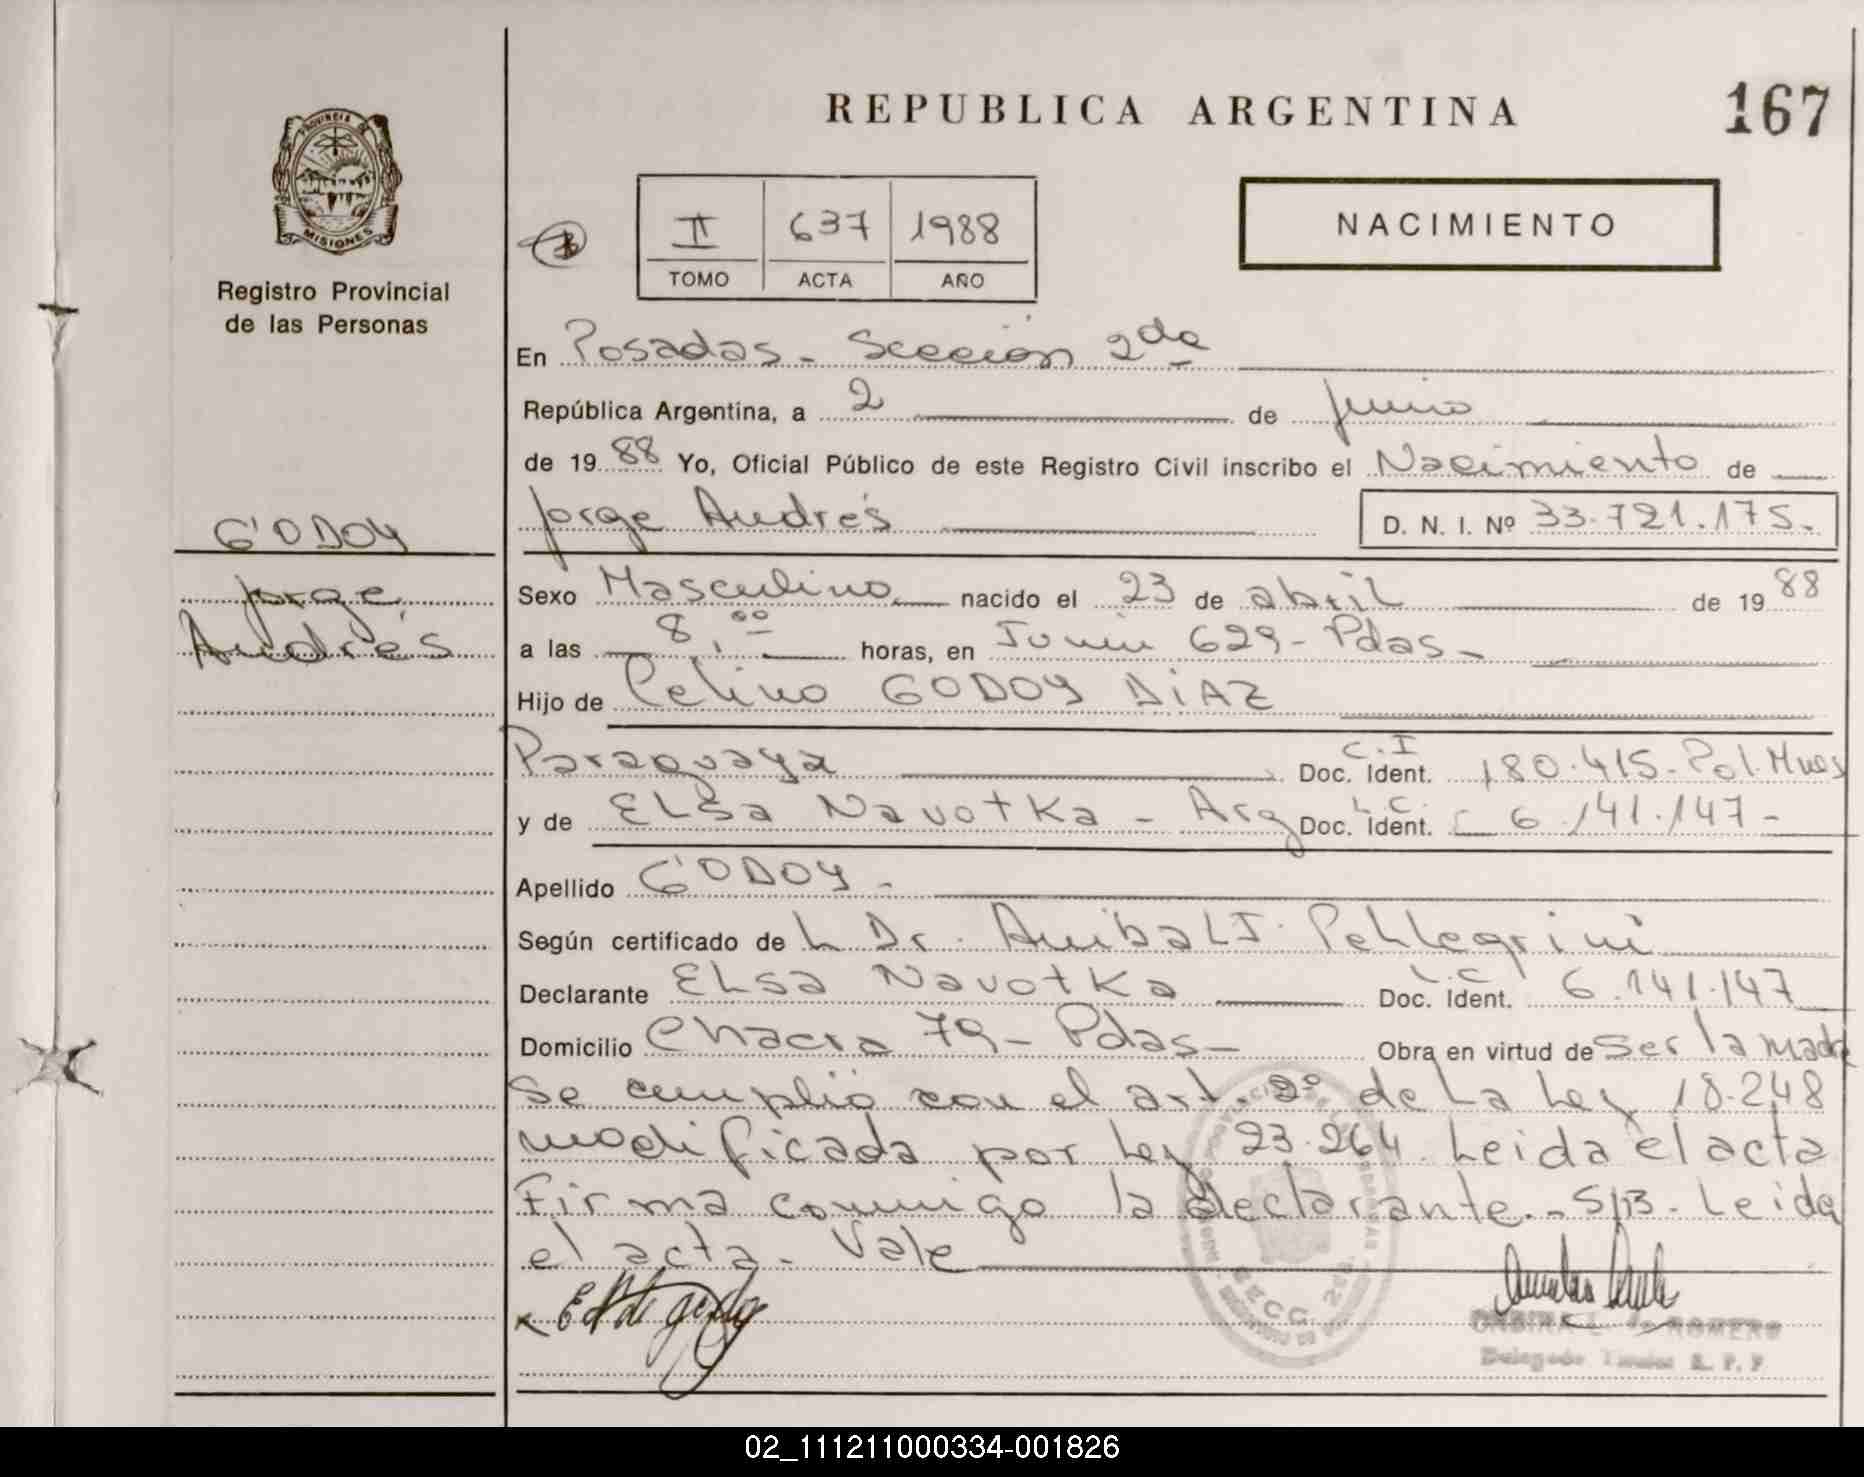 REPUBLICA ARGENTINA
167
PROVINCIA DE
MISIONES
Registro Provincial
de las Personas
II 637 1988
TOMO ACTA AÑO
NACIMIENTO
En Posadas - Sección 2da
República Argentina, a 2 de junio
de 1988 Yo, Oficial Público de este Registro Civil inscribo el Nacimiento de
Jorge Andrés
D. N. I. Nº 33.721.175.
GODOY
Jorge
Andrés
Sexo Masculino nacido el 23 de abril de 1988
a las 8,00 horas, en Junin 629 - Pdas -
Hijo de Celino GODOY DIAZ
Paraguaya C.I Doc. Ident. 180.415 - Pol. Mnes
y de ELsa Navotka - Arg L.C. Doc. Ident. 6.141.147 -
Apellido GODOY -
Según certificado de L Dr. Anibal J. Pellegrini
Declarante ELsa Navotka L.C Doc. Ident. 6.141.147
Domicilio Chacra 79 - Pdas - Obra en virtud de ser la madre
Se cumplió con el art. 2º de La Ley 18.248
modificada por Ley 23.264. Leida el acta
Firma conmigo la declarante. - S/B - Leida
el acta - Vale
R.P.P. 2da.
ROMERO
Delegado Titular R. P. P
02_111211000334-001826